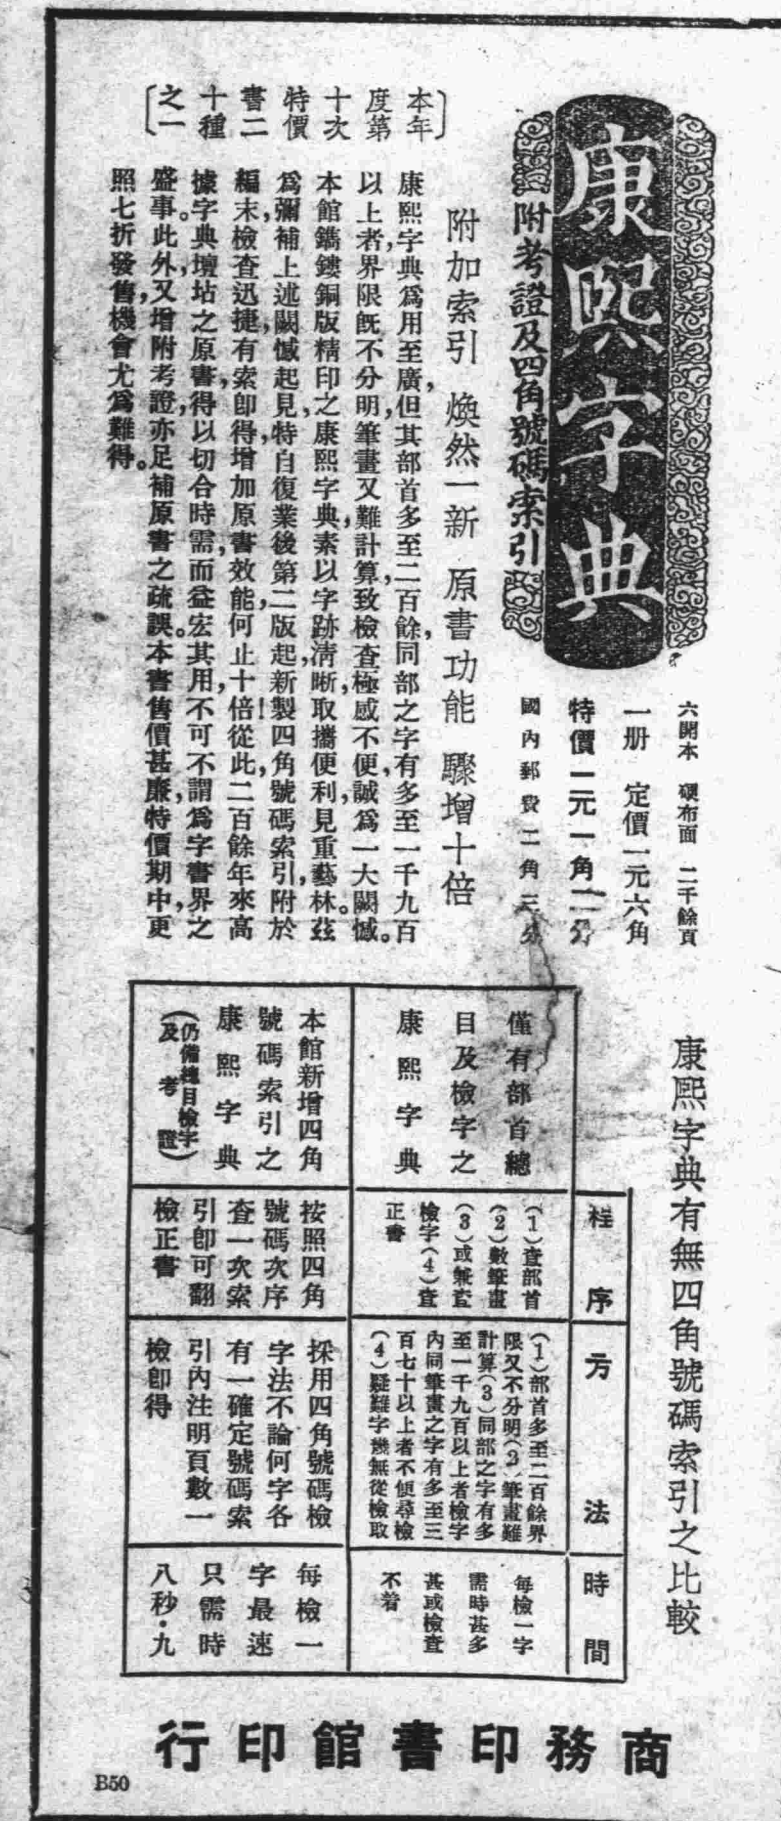 康熙字典
附考證及四角號碼索引
六開本 硬布面 二千餘頁
一册 定價一元六角
特價一元一角二分
國內郵費二角三分
〔本年
度第
十次
特價
書二
十種
之一〕
附加索引 煥然一新 原書功能 驟增十倍
康熙字典爲用至廣，但其部首多至二百餘，同部之字有多至一千九百
以上者，界限旣不分明，筆畫又難計算，致檢查極感不便，誠爲一大闕憾。
本館鐫鏤銅版精印之康熙字典，素以字跡淸晰，取攜便利，見重藝林。茲
爲彌補上述闕憾起見，特自復業後第二版起，新製四角號碼索引，附於
編末，檢查迅捷，有索卽得，增加原書效能，何止十倍！從此，二百餘年來高
據字典壇坫之原書，得以切合時需，而益宏其用，不可不謂爲字書界之
盛事。此外，又增附考證，亦足補原書之疏誤。本書售價甚廉，特價期中，更
照七折發售，機會尤爲難得。
康熙字典有無四角號碼索引之比較
程序
方法
時間
僅有部首總
目及檢字之
康熙字典
（1）查部首
（2）數筆畫
（3）或兼查
檢字（4）查
正書
（1）部首多至二百餘界
限又不分明（2）筆畫難
計算（3）同部之字有多
至一千九百以上者檢字
內同筆畫之字有多至三
百七十以上者不便尋檢
（4）疑難字幾無從檢取
每檢一字
需時甚多
甚或檢查
不着
本館新增四角
號碼索引之
康熙字典
（仍備總目檢字
及考證）
按照四角
號碼次序
查一次索
引卽可翻
檢正書
採用四角號碼檢
字法不論何字各
有一確定號碼索
引內注明頁數一
檢卽得
每檢一
字最速
只需時
八秒·九
商務印書館印行
B50